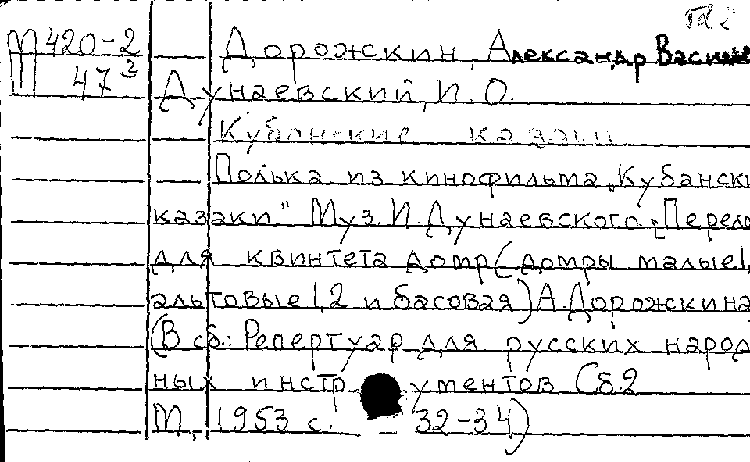 М420-2 Дорожкин, Александр Василье
47³ Дунаевский, И.О.
Кубанские казаки
Полька из кинофильма „Кубански
казаки" Муз. И. Дунаевского. Перело
для квинтета домр (домры малые 1,
альтовые 1,2 и басовая) А. Дорожкина
(В сб.: Репертуар для русских народ
ных инструментов Сб.2
М., 1953 с. 32-34)